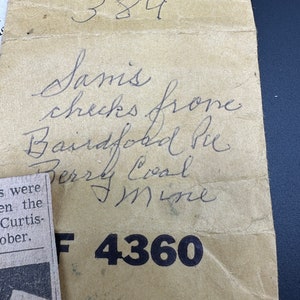 384
Sam's
checks from
Bandford Pie
Berry Coal
Mine
s were
en the
Curtis-
ober.
F 4360